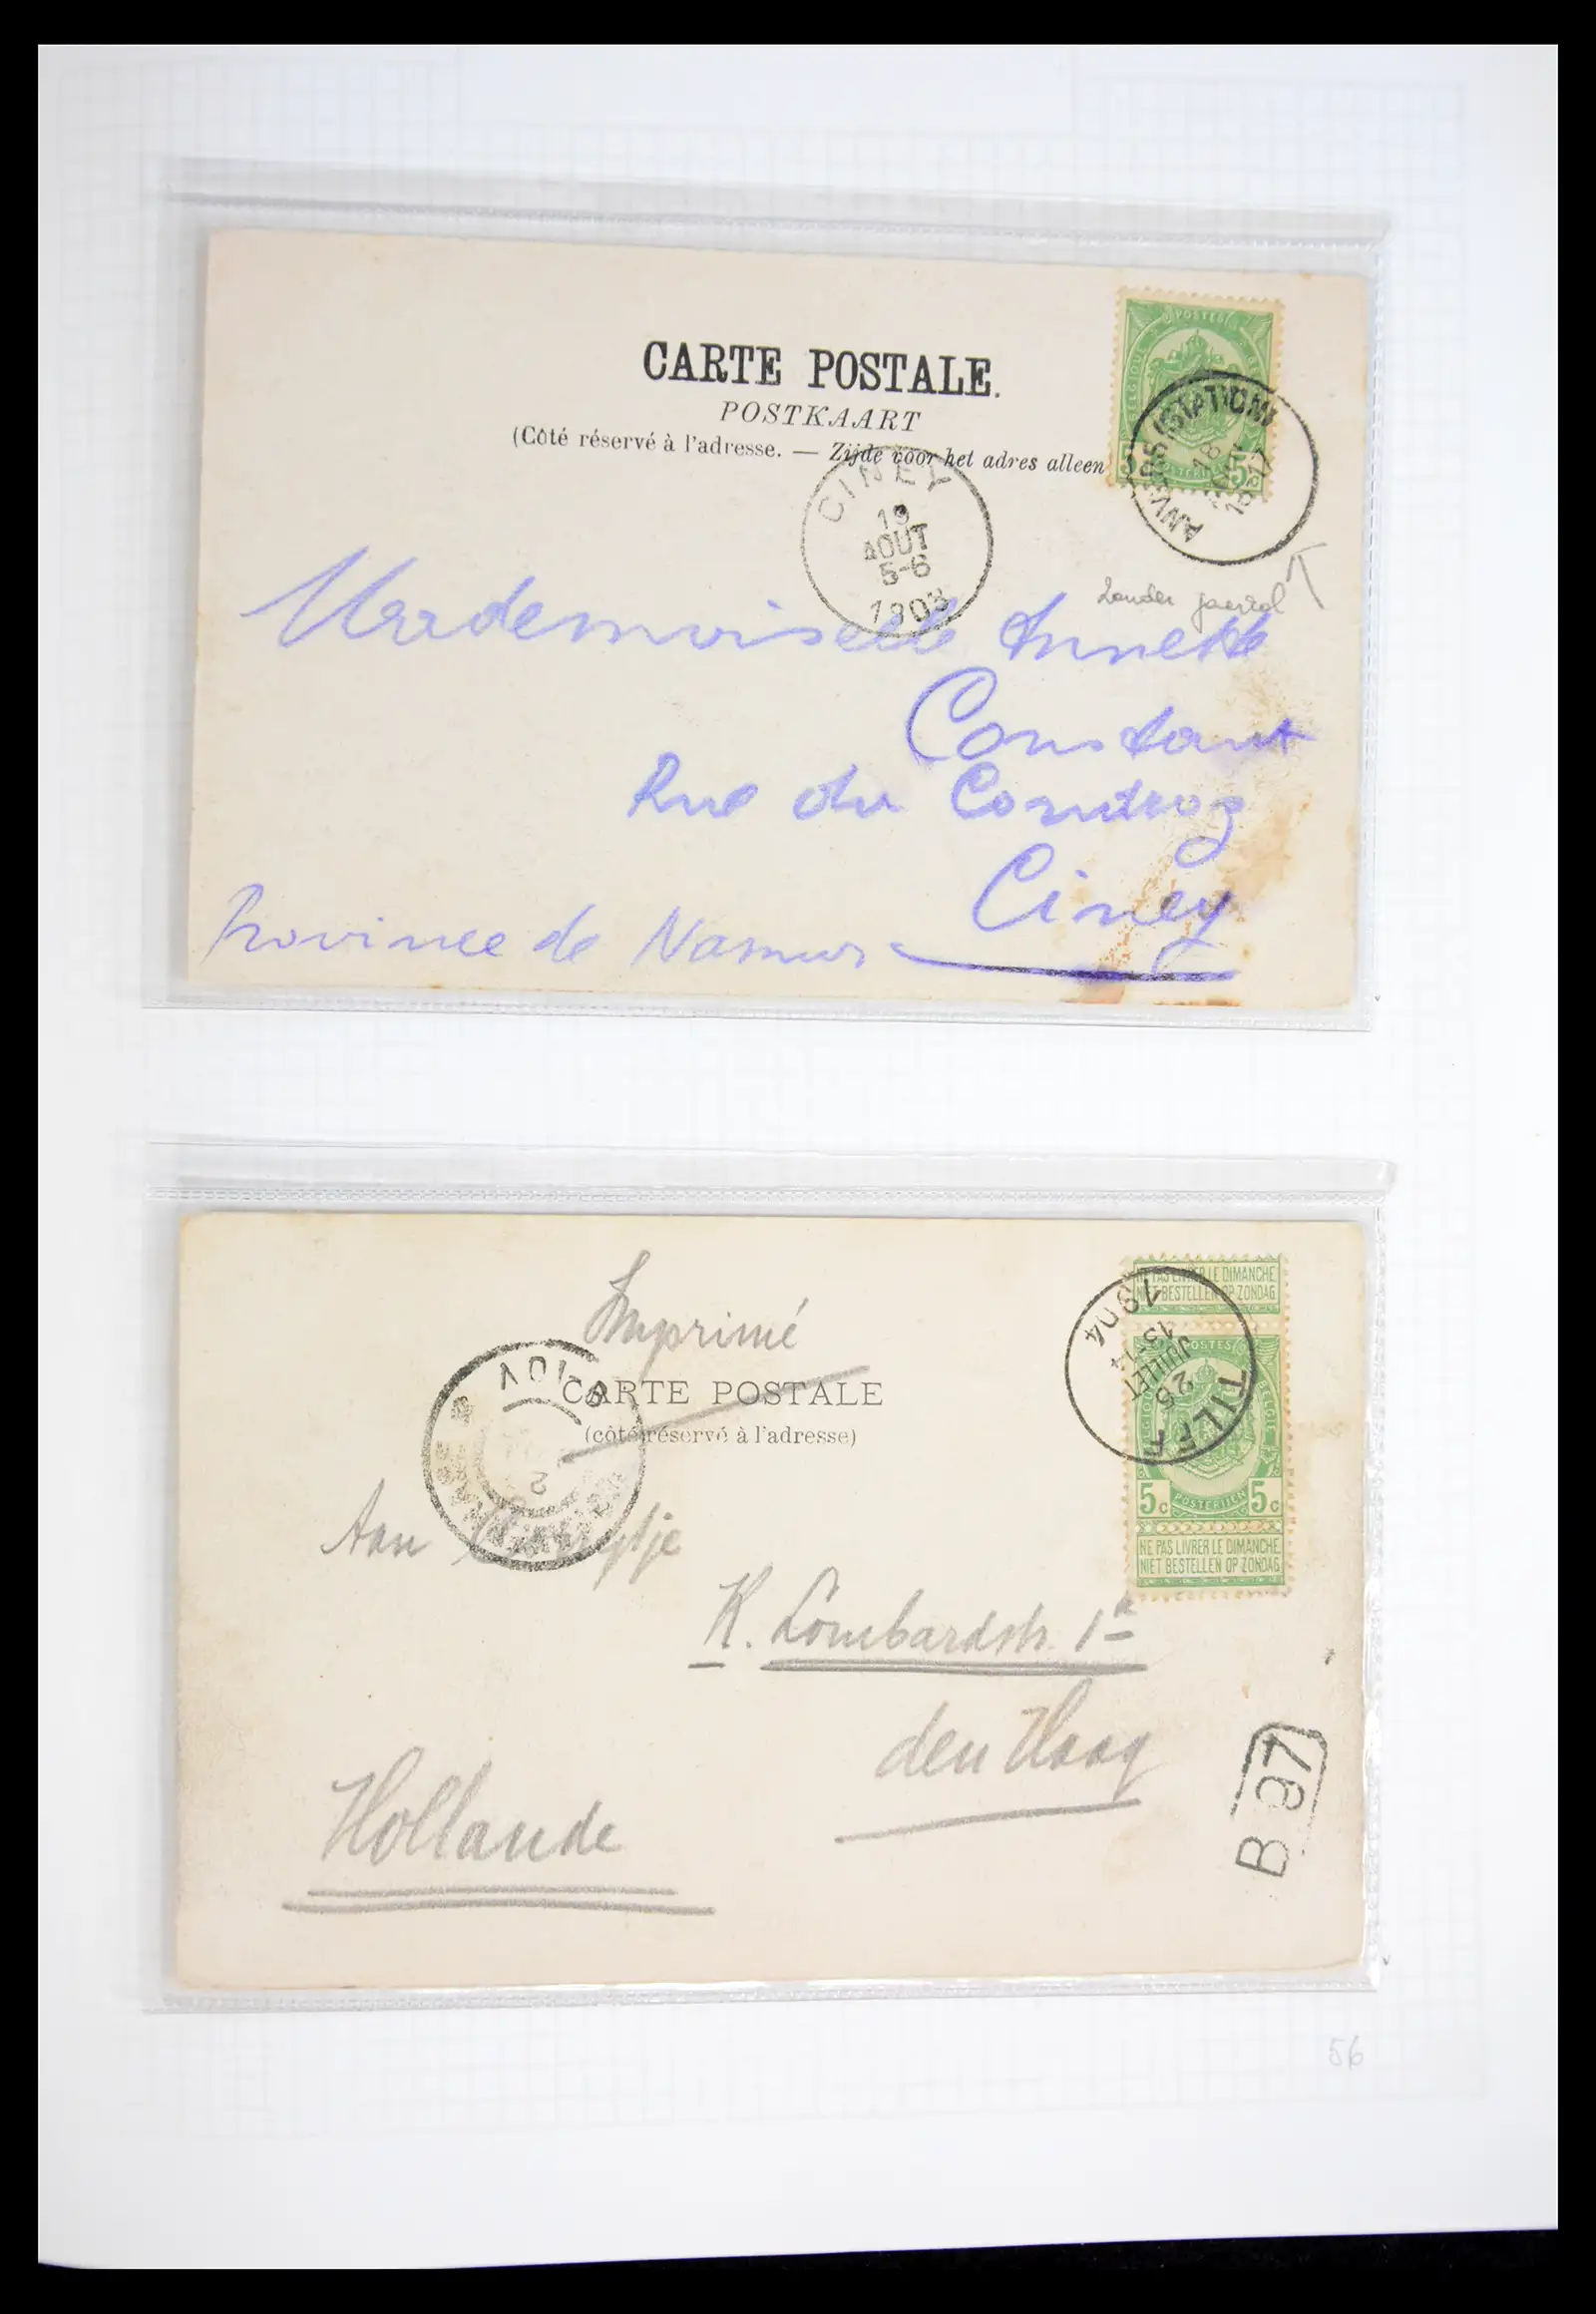 CARTE POSTALE.
POSTKAART
(Côté réservé à l'adresse. — Zijde voor het adres alleen
POSTES
BELGIQUE
5
5c
ANVERS (STATION)
18
16-17
CINEY
19
AOUT
5-6
1903
Mademoiselle Annette
Constant
Rue du Condroz
Ciney
Province de Namur
Imprimé
CARTE POSTALE
(côté réservé à l'adresse)
NE PAS LIVRER LE DIMANCHE
NIET BESTELLEN OP ZONDAG
POSTES
5c POSTERIJEN 5c
NE PAS LIVRER LE DIMANCHE
NIET BESTELLEN OP ZONDAG
TILFF
26
JUILLET
13-14
1904
Aan
K. Lombardstr. 1a
den Haag
Hollande
B 87
56